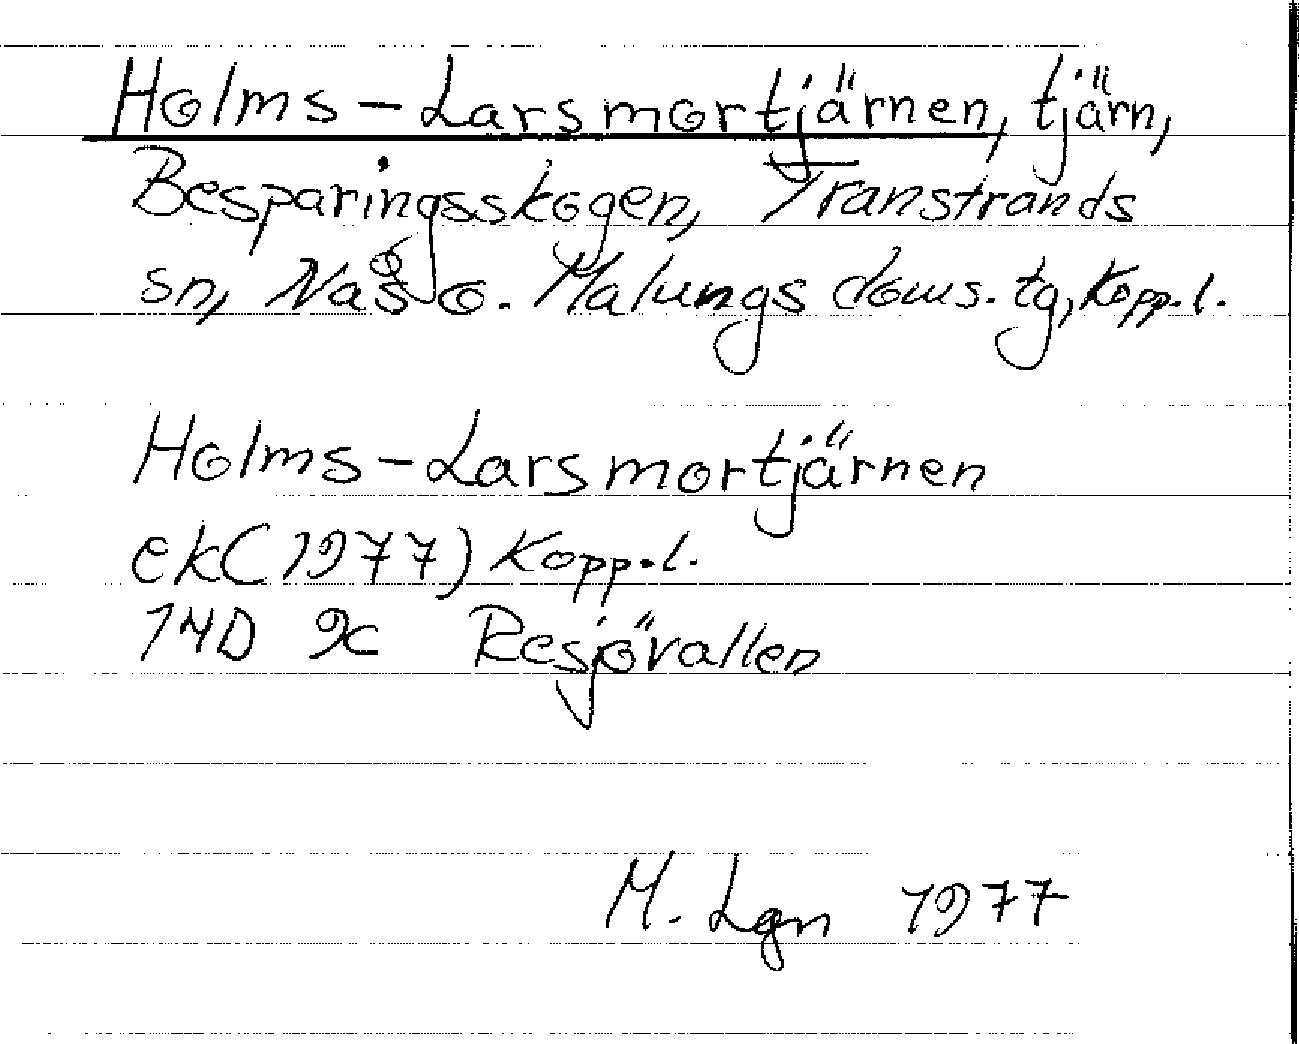 Holms-Larsmortjärnen, tjärn,
Besparingsskogen, Transtrands
sn, Nås o. Malungs doms. tg, Kopp.l.
Holms-Larsmortjärnen
ek (1977) Kopp.l.
14D 9c Resjövallen
M. Lgn 1977